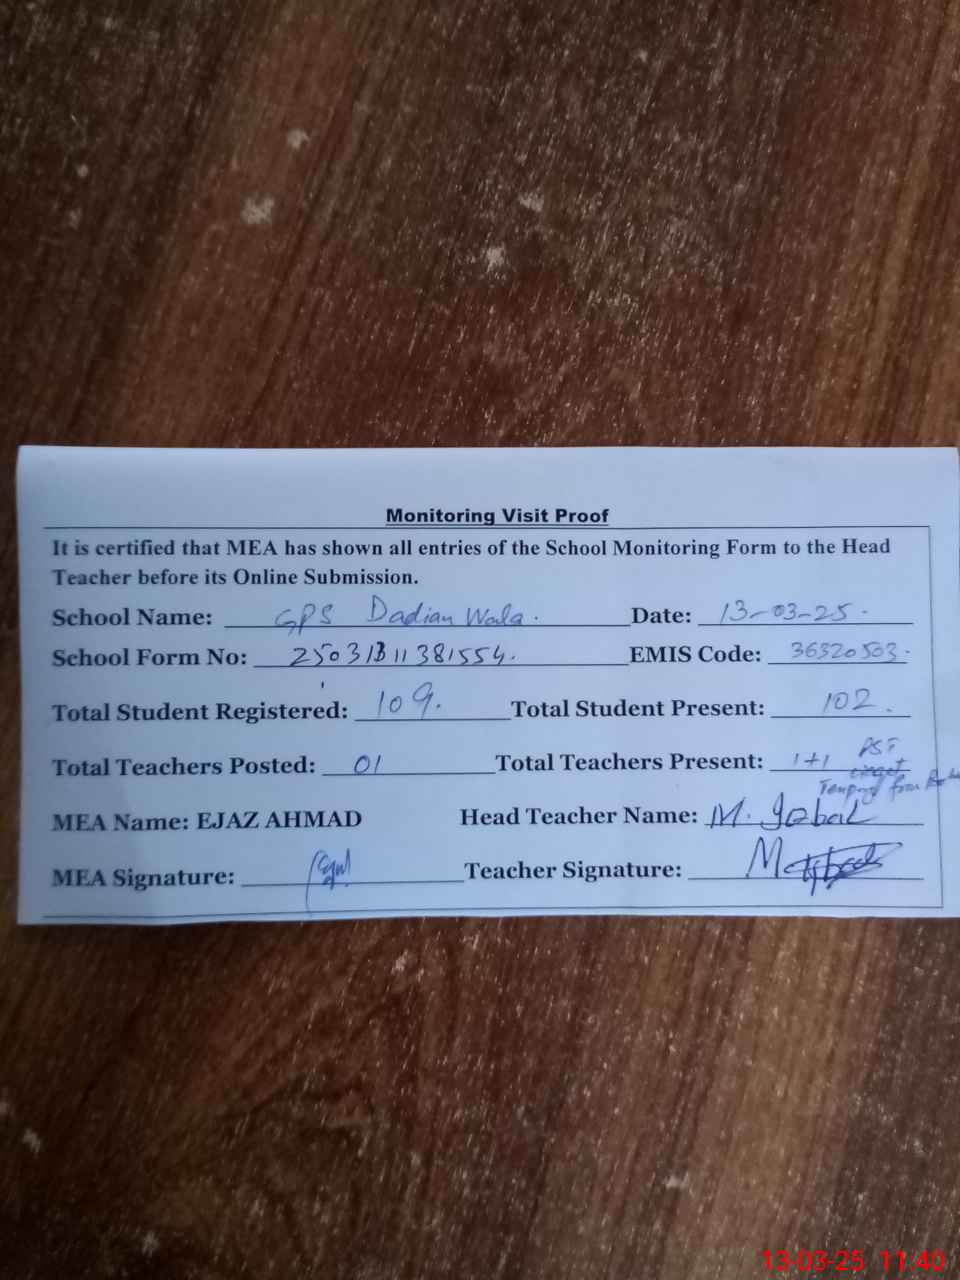 Monitoring Visit Proof
It is certified that MEA has shown all entries of the School Monitoring Form to the Head
Teacher before its Online Submission.
School Name: GPS Dadian Wala. Date: 13-03-25.
School Form No: 25031311381554. EMIS Code: 36320503.
Total Student Registered: 109. Total Student Present: 102.
PST
Total Teachers Posted: 01 Total Teachers Present: 1+1
from
MEA Name: EJAZ AHMAD Head Teacher Name: M. Iqbal
MEA Signature: Teacher Signature: M
13-03-25 11:40